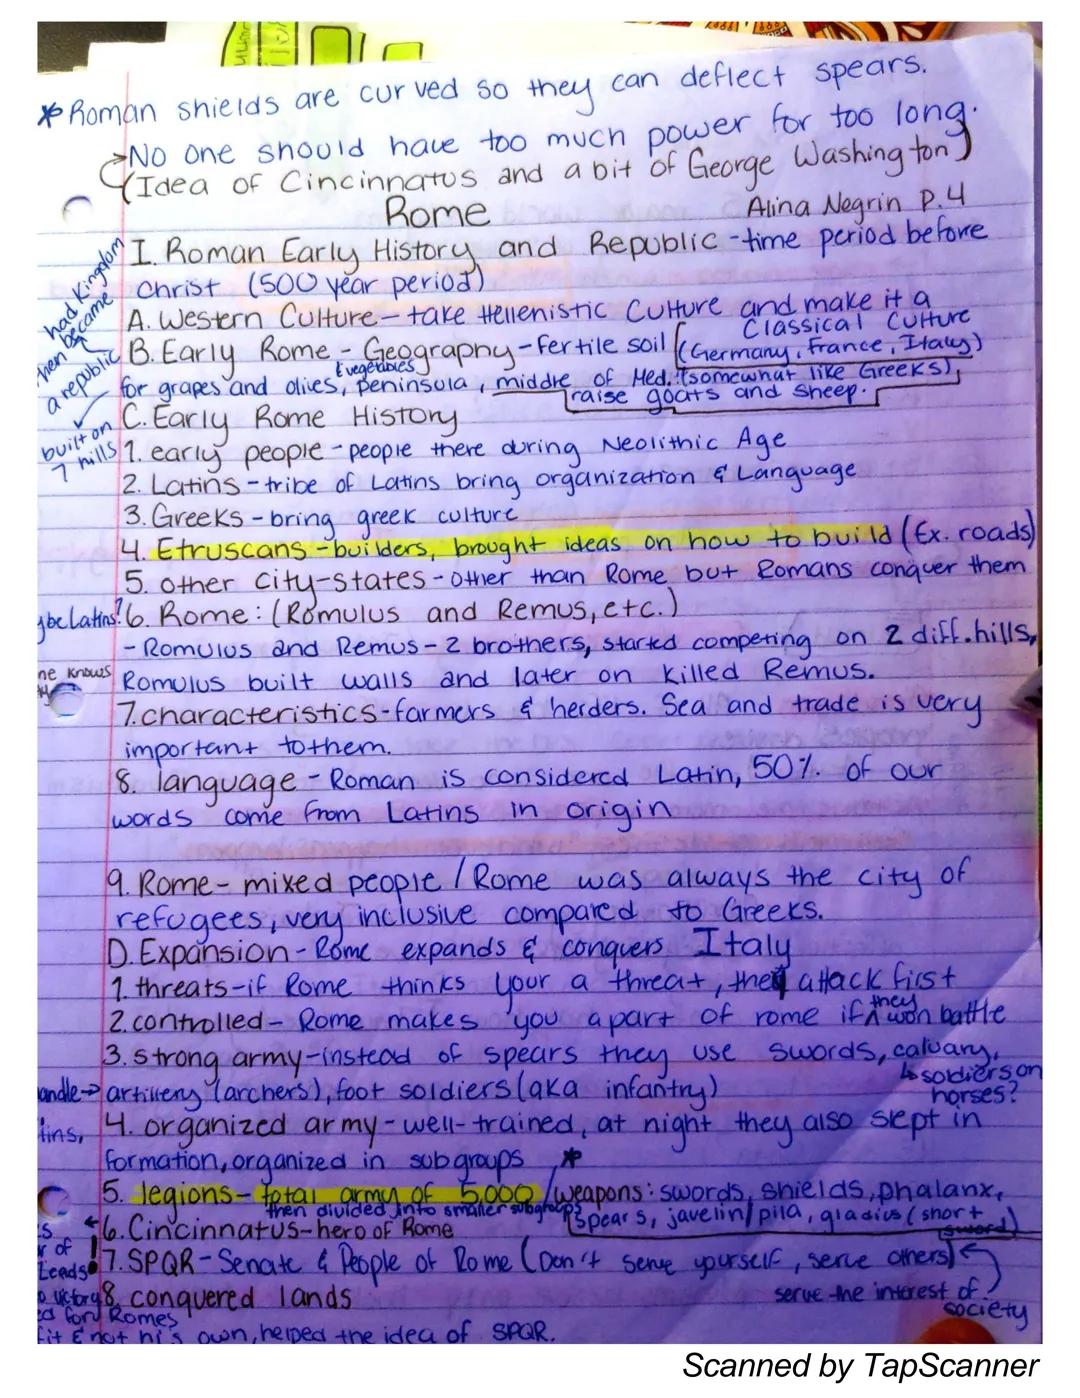 * Roman shields are curved so they can deflect spears.
→ No one should have too much power for too long.
(Idea of Cincinnatus and a bit of George Washington)
Rome
Alina Negrin P.4
I. Roman Early History and Republic - time period before
Christ (500 year period)
had Kingdom
then became
a republic
built on
7 hills
A. Western Culture - take Hellenistic Culture and make it a
Classical Culture
B. Early Rome - Geography - fertile soil (Germany, France, Italy)
& vegetables
for grapes and olives, peninsula, middle of Med. (somewhat like Greeks),
raise goats and sheep.
C. Early Rome History
1. early people - people there during Neolithic Age
2. Latins - tribe of Latins bring organization & Language
3. Greeks - bring greek culture
4. Etruscans - builders, brought ideas on how to build (Ex. roads)
5. other city-states - other than Rome but Romans conquer them
ybe Latins? 6. Rome: (Romulus and Remus, etc.)
- Romulus and Remus - 2 brothers, started competing on 2 diff. hills,
ne knows
Romulus built walls and later on killed Remus.
7. characteristics - farmers & herders. Sea and trade is very
important to them.
8. language - Roman is considered Latin, 50% of our
words come from Latins in origin
9. Rome - mixed people / Rome was always the city of
refugees, very inclusive compared to Greeks.
D. Expansion - Rome expands & conquers Italy
1. threats - if Rome thinks your a threat, they attack first
2. controlled - Rome makes you a part of rome if they won battle
3. strong army - instead of spears they use swords, calvary,
↳ soldiers on
horses?
andle → artillery (archers), foot soldiers (aka infantry)
tins,
4. organized army - well-trained, at night they also slept in
formation, organized in subgroups *
5. legions - total army of 5,000 / weapons: swords, shields, phalanx,
then divided into smaller subgroups
spears, javelin/pila, gladius (short
sword)
6. Cincinnatus - hero of Rome
r of
Leads
7. SPQR - Senate & People of Rome (Don't serve yourself, serve others)
serve the interest of
society
o victory
8. conquered lands
ed for Romes
fit & not his own, helped the idea of SPQR.
Scanned by TapScanner